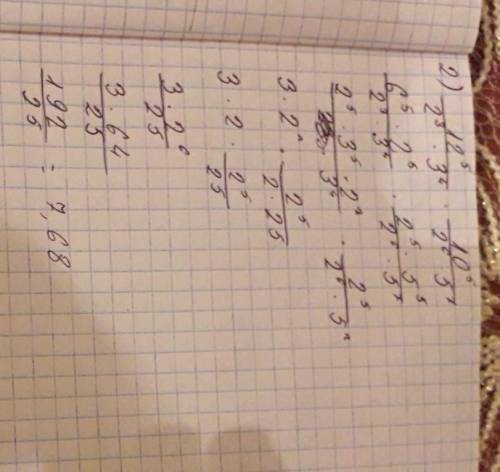 2) 12⁵/(2⁵ · 3⁴) · 10⁵/(2⁶ · 5⁷)
6⁵ · 2⁵/(2⁵ · 3⁴) · 2⁵ · 5⁵/(2⁶ · 5⁷)
2⁵ · 3⁵ · 2ⁿ/3⁴ · 2⁵/(2⁶ · 5ⁿ)
3 · 2ⁿ · 2⁵/(2 · 25)
3 · 2 · 2⁵/25
3 · 2⁶/25
3 · 64/25
192/25 = 7,68